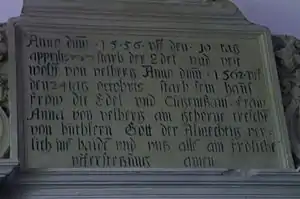 Anno dm̄ · 15 · 56 · vff den · 19 tag
apprylis starb der Edel und vest
wolff von velberg Anno dm̄ · 1562 vff
den 24 tag octobris starb sein haus
frow die Edel und Tugentsam frow
Anna von velberg am
von Gott der Almechtig ver
lich inē baide und unß alle am froliche
ufferstehung amen